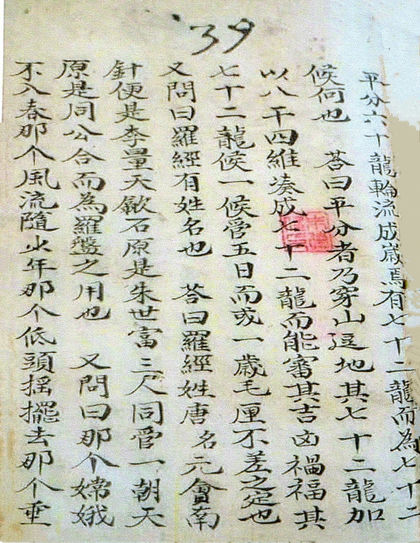 39
平分六十龍輪流成歲焉有七十二龍而為七十二
候何也 答曰平分者乃穿山逗地其七十二龍加
以八干四維湊成七十二龍而能審其吉凶禍福其
七十二龍候一候管五日而或一歲毛厘不差之定也
又問曰羅經有姓名也 答曰羅經姓唐名元會南
針便是李量天歛石原是朱世富三人同管一朝天
原是同公合而為羅盤之用也 又問曰那个嫦娥
不入春那个風流隨少年那个低頭搖擺去那个垂